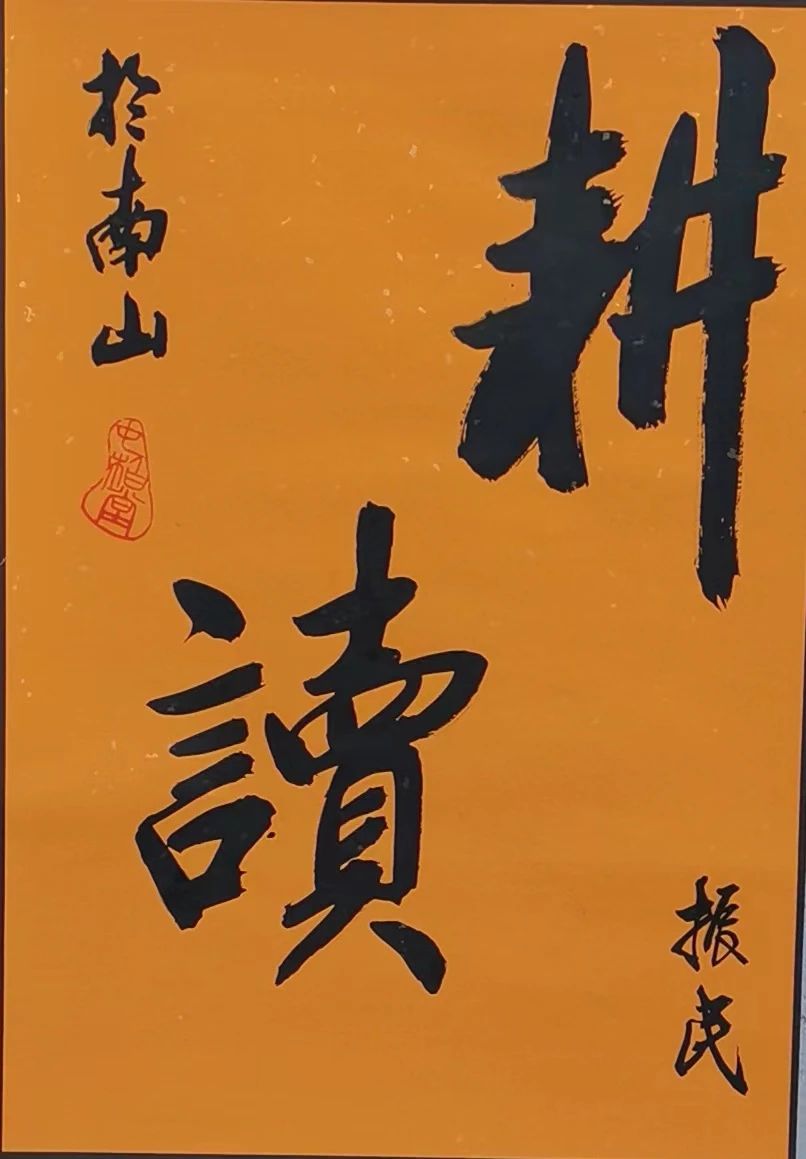 耕讀
振民
於南山